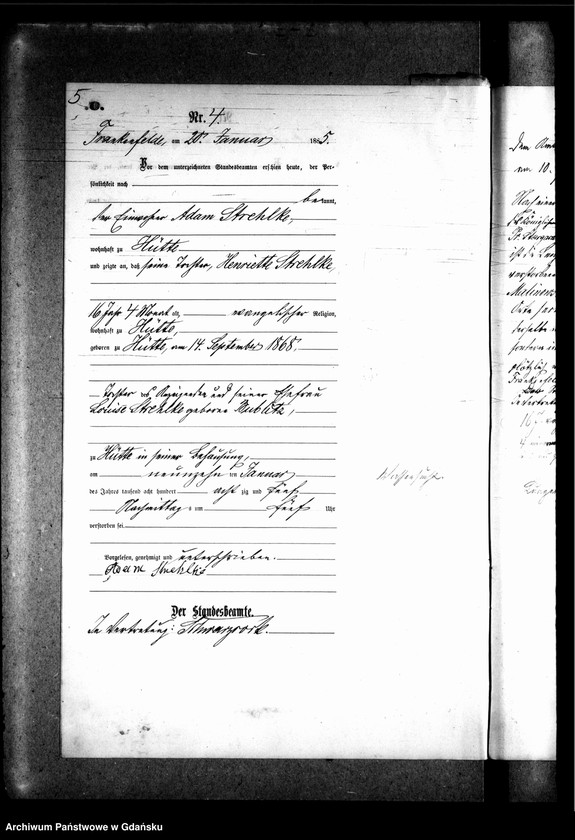 5
Nr. 4
Frankenfelde, am 20. Januar 1885.
Vor dem unterzeichneten Standesbeamten erschien heute, der Per-
sönlichkeit nach
bekannt,
der Einwohner Adam Strehlke,
wohnhaft zu Hütte
und zeigte an, daß seine Tochter, Henriette Strehlke,
16 Jahr 4 Monat alt, evangelischer Religion,
wohnhaft zu Hütte,
geboren zu Hütte, am 14. September 1868.
Tochter des Anzeigenden und seiner Ehefrau
Louise Strehlke geborene Bublitz,
zu Hütte in seiner Behausung,
am neunzehn ten Januar
des Jahres tausend acht hundert acht zig und fünf
Nachmittag s um fünf Uhr
verstorben sei.
Vorgelesen, genehmigt und unterschrieben.
Adam Strehlke
Der Standesbeamte.
In Vertretung: Schwarzrock.
Wassersucht.
Archiwum Państwowe w Gdańsku